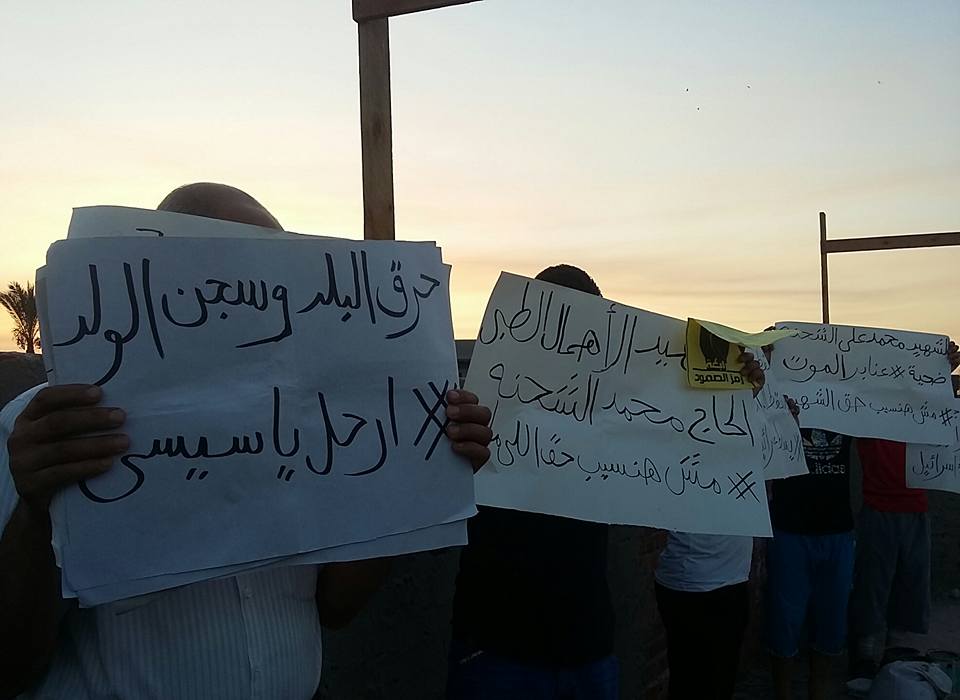 حرق البلد وسجن الولد
# ارحل يا سيسي
الأهمال الطبى
الحاج محمد الشحته
# مش هنسيب حق اللى
رمز الصمود
الشهيد محمد على الشحته
ضحية # عنابر الموت
# مش هنسيب حق الشهيد
adidas